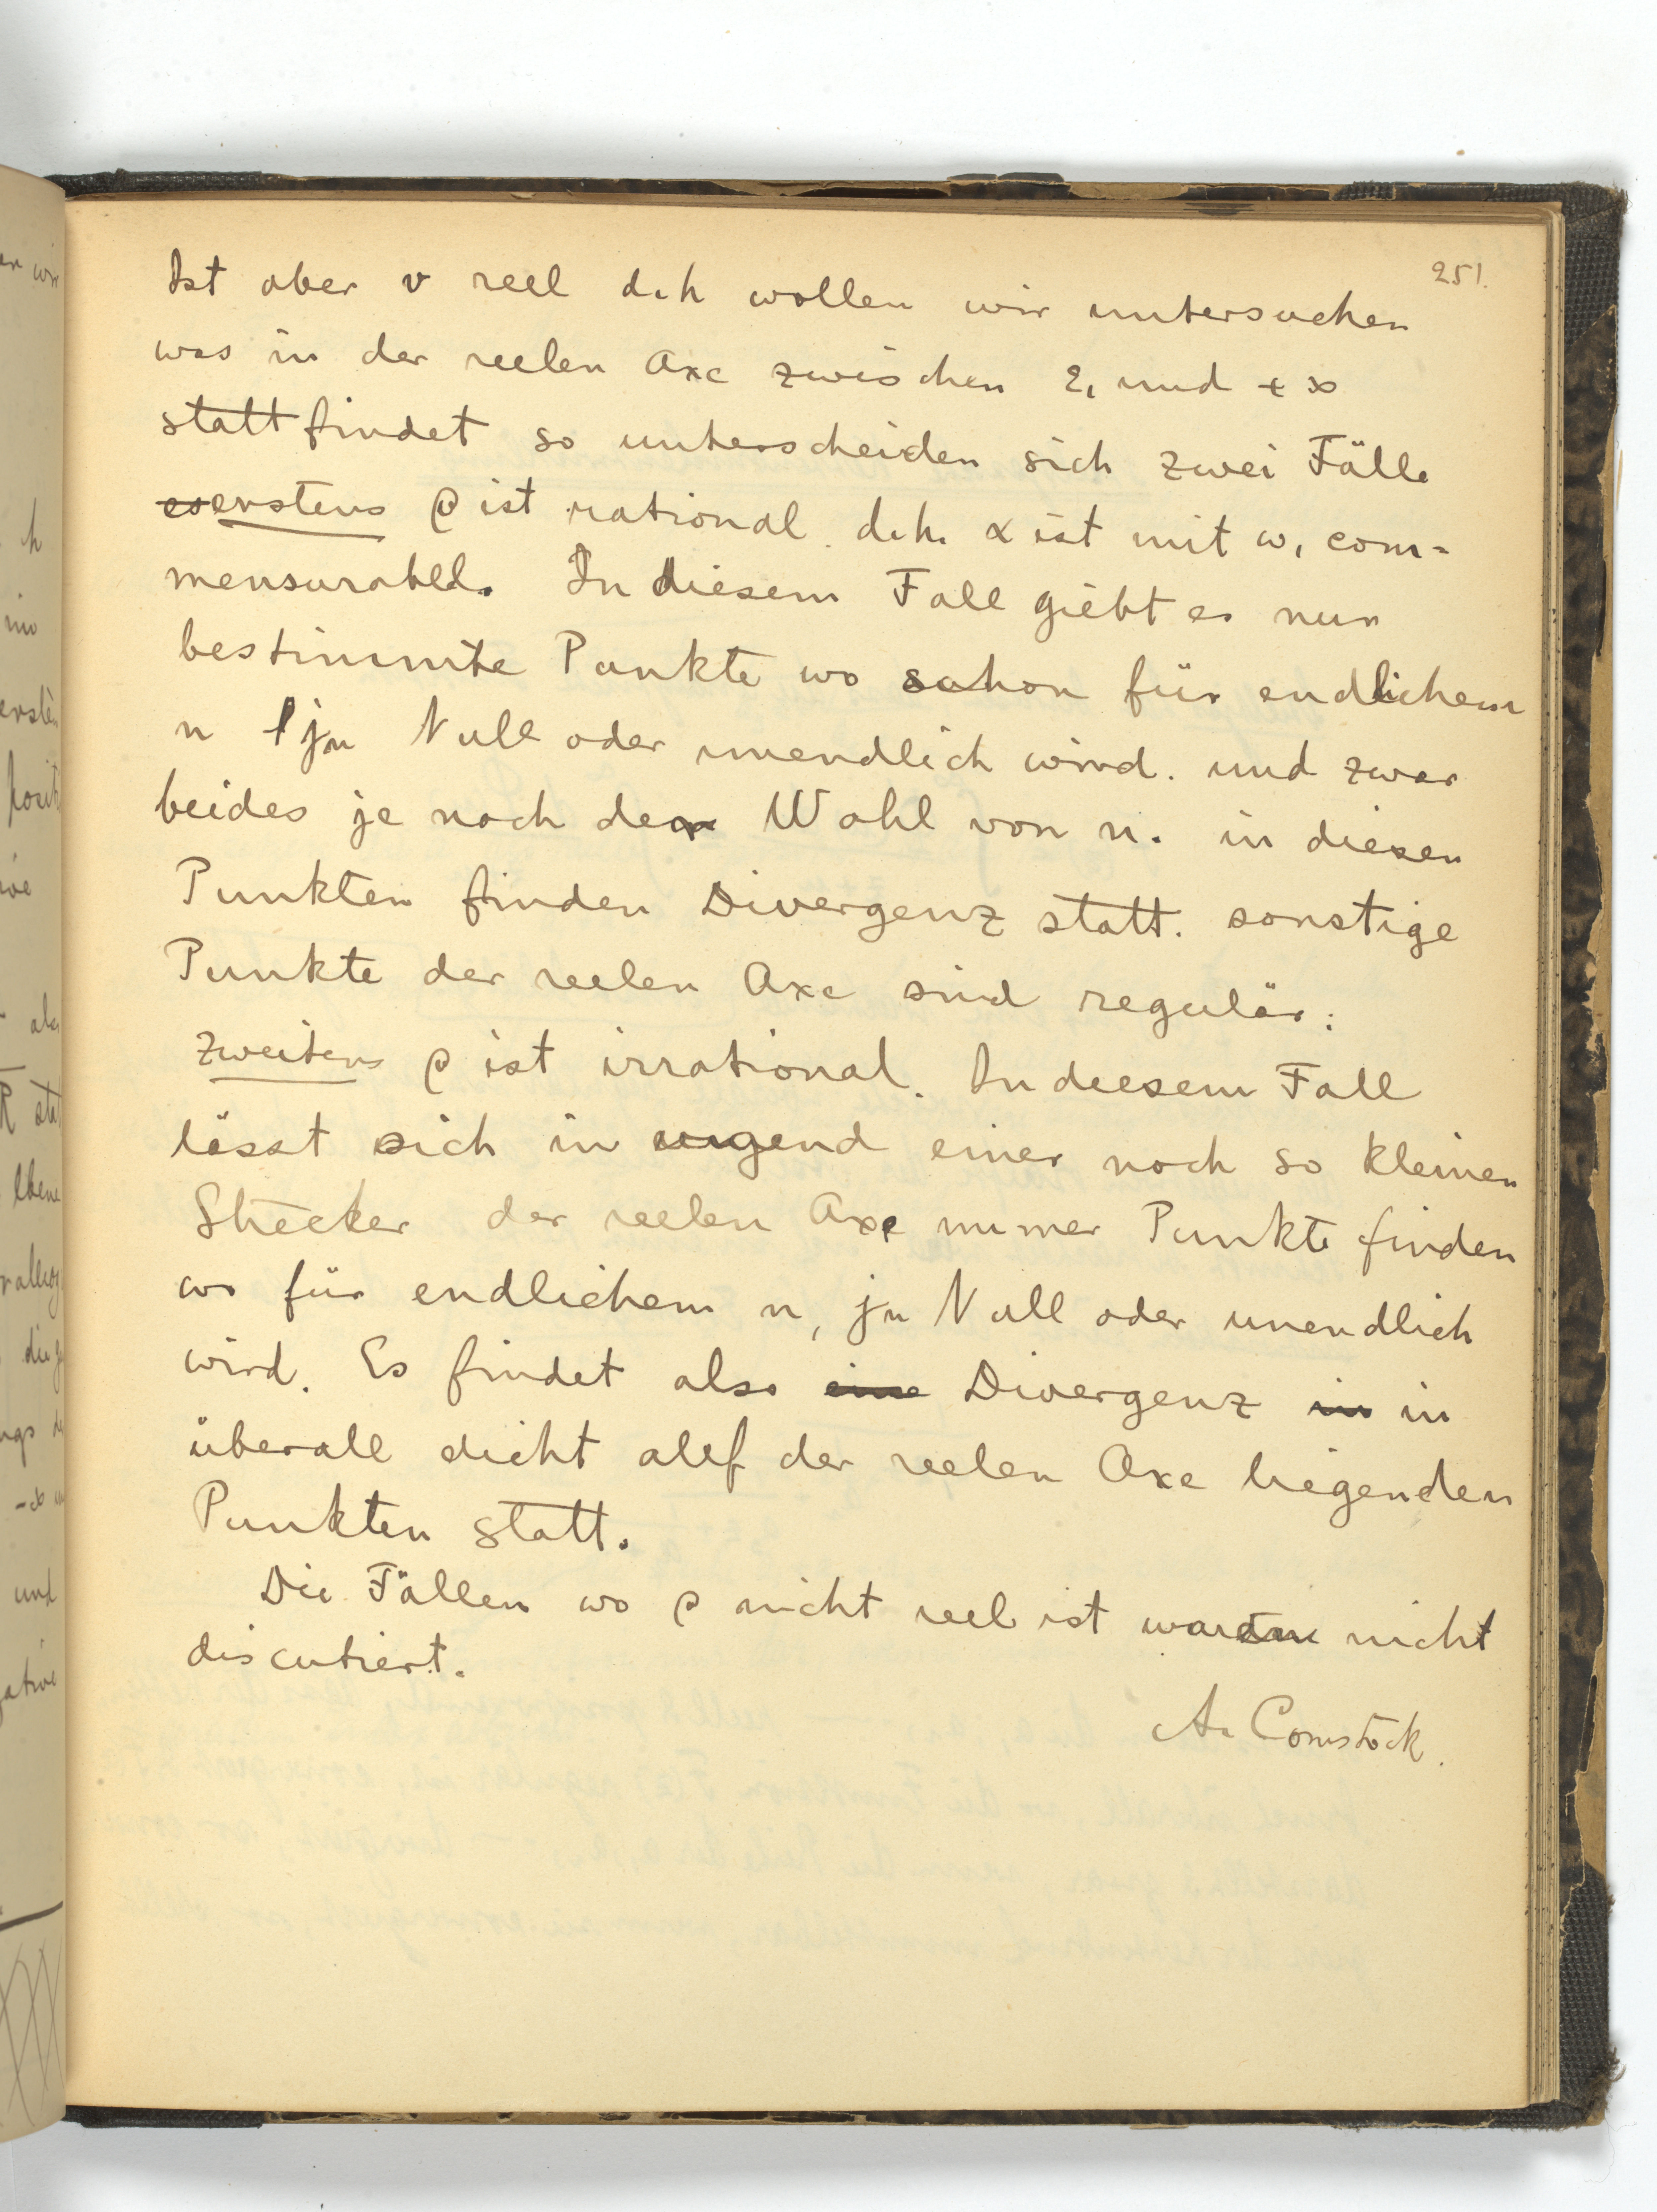 251.
Ist aber v reel d.h wollen wir untersuchen
was in der reelen Axe zwischen e₁ und + ∞
stattfindet so unterscheiden sich zwei Fälle
erstens ρ ist rational. d.h. α ist mit ω₁ com-
mensurabel. In diesem Fall giebt es nun
bestimmte Punkte wo schon für endlichem
n jn Null oder unendlich wird. und zwar
beides je nach der Wahl von n. in diesen
Punkten finden Divergenz statt. sonstige
Punkte der reelen Axe sind regulär:
Zweitens ρ ist irrational. In diesem Fall
lässt sich in irgend einer noch so kleinen
Strecker der reelen Axe immer Punkte finden
wo für endlichem n, jn Null oder unendlich
wird. Es findet also eine Divergenz in in
überall dicht auf der reelen Axe liegenden
Punkten statt.
Die Fällen wo ρ nicht reel ist waren nicht
discutiert.
A. Comstock.